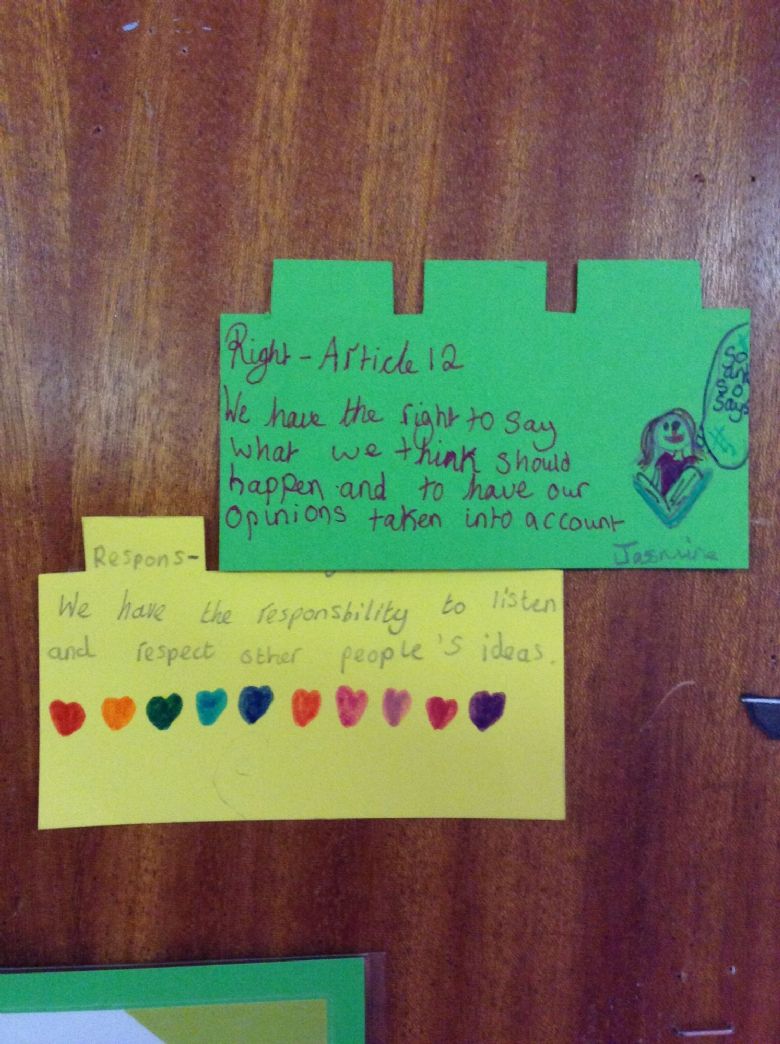 Right - Article 12
We have the right to say
what we think should
happen and to have our
opinions taken into account
Jasmine
Respons-
We have the responsbility to listen
and respect other people's ideas.